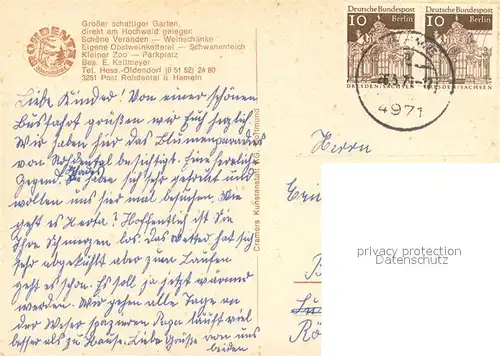 ROHDENTAL
Großer schattiger Garten,
direkt am Hochwald gelegen
Schöne Veranden — Weinschänke
Eigene Obstweinkelterei — Schwanenteich
Kleiner Zoo — Parkplatz
Bes. E. Kallmeyer
Tel. Hess.-Oldendorf (0 51 52) 24 60
3251 Post Rohdental ü Hameln
Liebe Kinder! Von einer schönen
Busfahrt grüßen wir Euch herzlich.
Wir haben hier das Blumenparadies
von Rohdental besichtigt. Eine herrliche
Gegend. haben sich sehr gefreut und
wollen uns mal besuchen. Wie
geht es Herta? Hoffentlich ist Sie
Ihre Schmerzen los. Das Wetter hat sich
sehr abgekühlt aber zum Laufen
geht es schon. Es soll ja jetzt wärmer
werden. Wir gehen alle Tage an
der Weser spazieren Papa läuft viel
besser als zu Hause. Liebe Grüße von uns
beiden
Cramers Kunstanstalt KG, Dortmund
Deutsche Bundespost
10 Berlin
DRESDEN/SACHSEN
Deutsche Bundespost
10 Berlin
DRESDEN/SACHSEN
4971
Herrn
privacy protection
Datenschutz